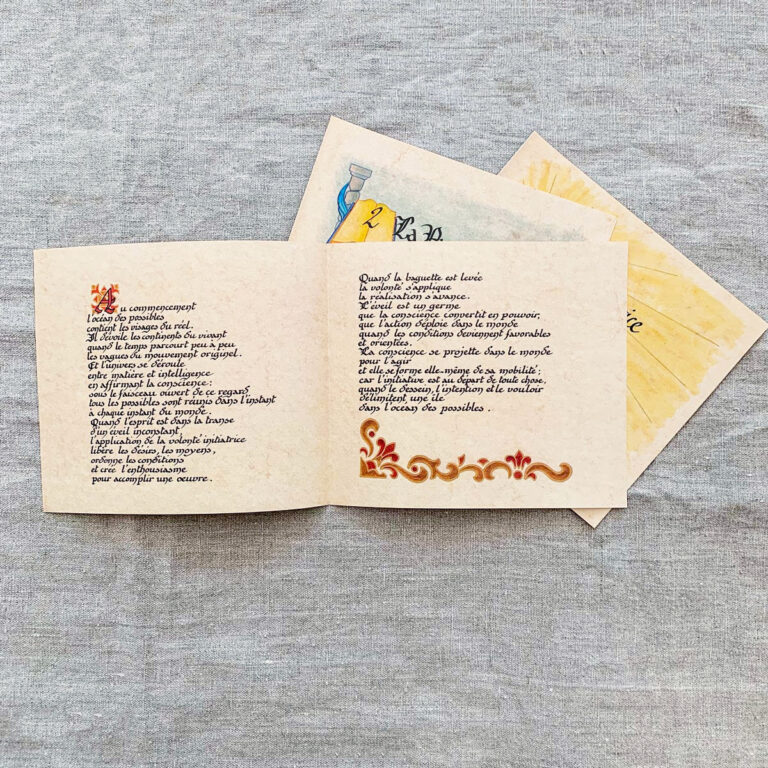 Au commencement
l'océan des possibles
contient les visages du réel.
Il dévoile les continents du vivant
quand le temps parcourt peu à peu
les vagues du mouvement originel.
Et l'univers se déroule
entre matière et intelligence
en affirmant la conscience :
sous le faisceau ouvert de ce regard
tous les possibles sont réunis dans l'instant
à chaque instant du monde.
Quand l'esprit est dans la transe
d'un éveil inconstant,
l'application de la volonté initiatrice
libère les désirs, les moyens,
ordonne les conditions
et crée l'enthousiasme
pour accomplir une œuvre.
Quand la baguette est levée
la volonté s'applique
la réalisation s'avance.
L'éveil est un germe
que la conscience convertit en pouvoir,
que l'action déploie dans le monde
quand les conditions deviennent favorables
et orientées.
La conscience se projette dans le monde
pour l'agir
et elle se forme elle-même de sa mobilité ;
car l'initiative est au départ de toute chose,
quand le dessein, l'intention et le vouloir
délimitent une île
dans l'océan des possibles.
2
La P
ice